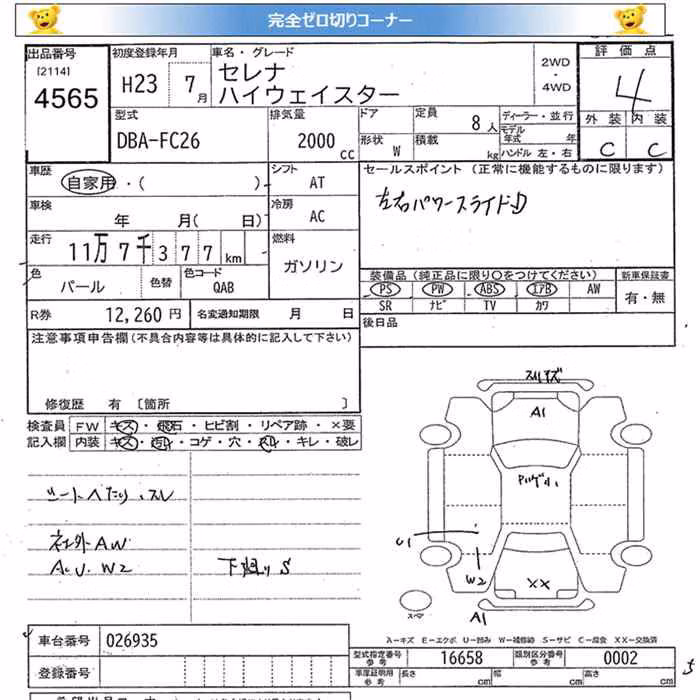 完全ゼロ切りコーナー
出品番号 初度登録年月 車名・グレード 評価点
[2114]
4565
H23 7月
セレナ
ハイウェイスター
2WD
・
4WD
4
型式 排気量 ドア 定員 8人 ディーラー・並行 外装 内装
DBA-FC26 2000cc
モデル年式 年
形状 W 積載 kg ハンドル 左・右 C C
車歴 自家用・( ) シフト AT
セールスポイント (正常に機能するものに限ります)
左右パワースライドD
車検 年 月( 日) 冷房 AC
走行 11万7千377km 燃料 ガソリン
色 パール 色替 色コード QAB
装備品(純正品に限り〇をつけてください) 新車保証書
PS PW ABS エアB AW 有・無
SR ナビ TV カワ
R券 12,260円 名変通知期限 月 日
後日品
注意事項申告欄(不具合内容等は具体的に記入して下さい)
修復歴 有 〔箇所 〕
検査員 FW キズ・飛石・ヒビ割・リペア跡・×要
記入欄 内装 キズ・汚れ・コゲ・穴・スレ・キレ・破レ
シートヘたり、スレ
社外AW
AU、W2 下廻りS
スリキズ
A1
U1
W2
XX
A1
スペア
A-キズ E-エクボ U-凹み W-補修跡 S-サビ C-腐食 XX-交換済
車台番号 026935
型式指定番号 参考 16658 類別区分番号 参考 0002
登録番号
車庫証明用 参考 長さ cm 幅 cm 高さ cm